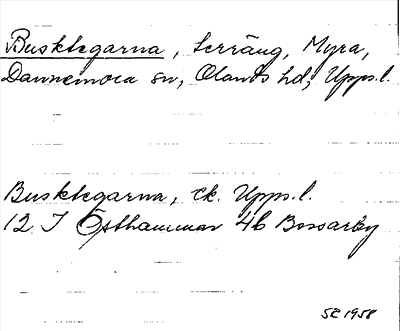 Busktegarna, terräng, Myra,
Dannemora sn, Olands hd, Upps.l.
Busktegarna, ek. Upps.l.
12 I Östhammar 4b Bossarby
SE 1958